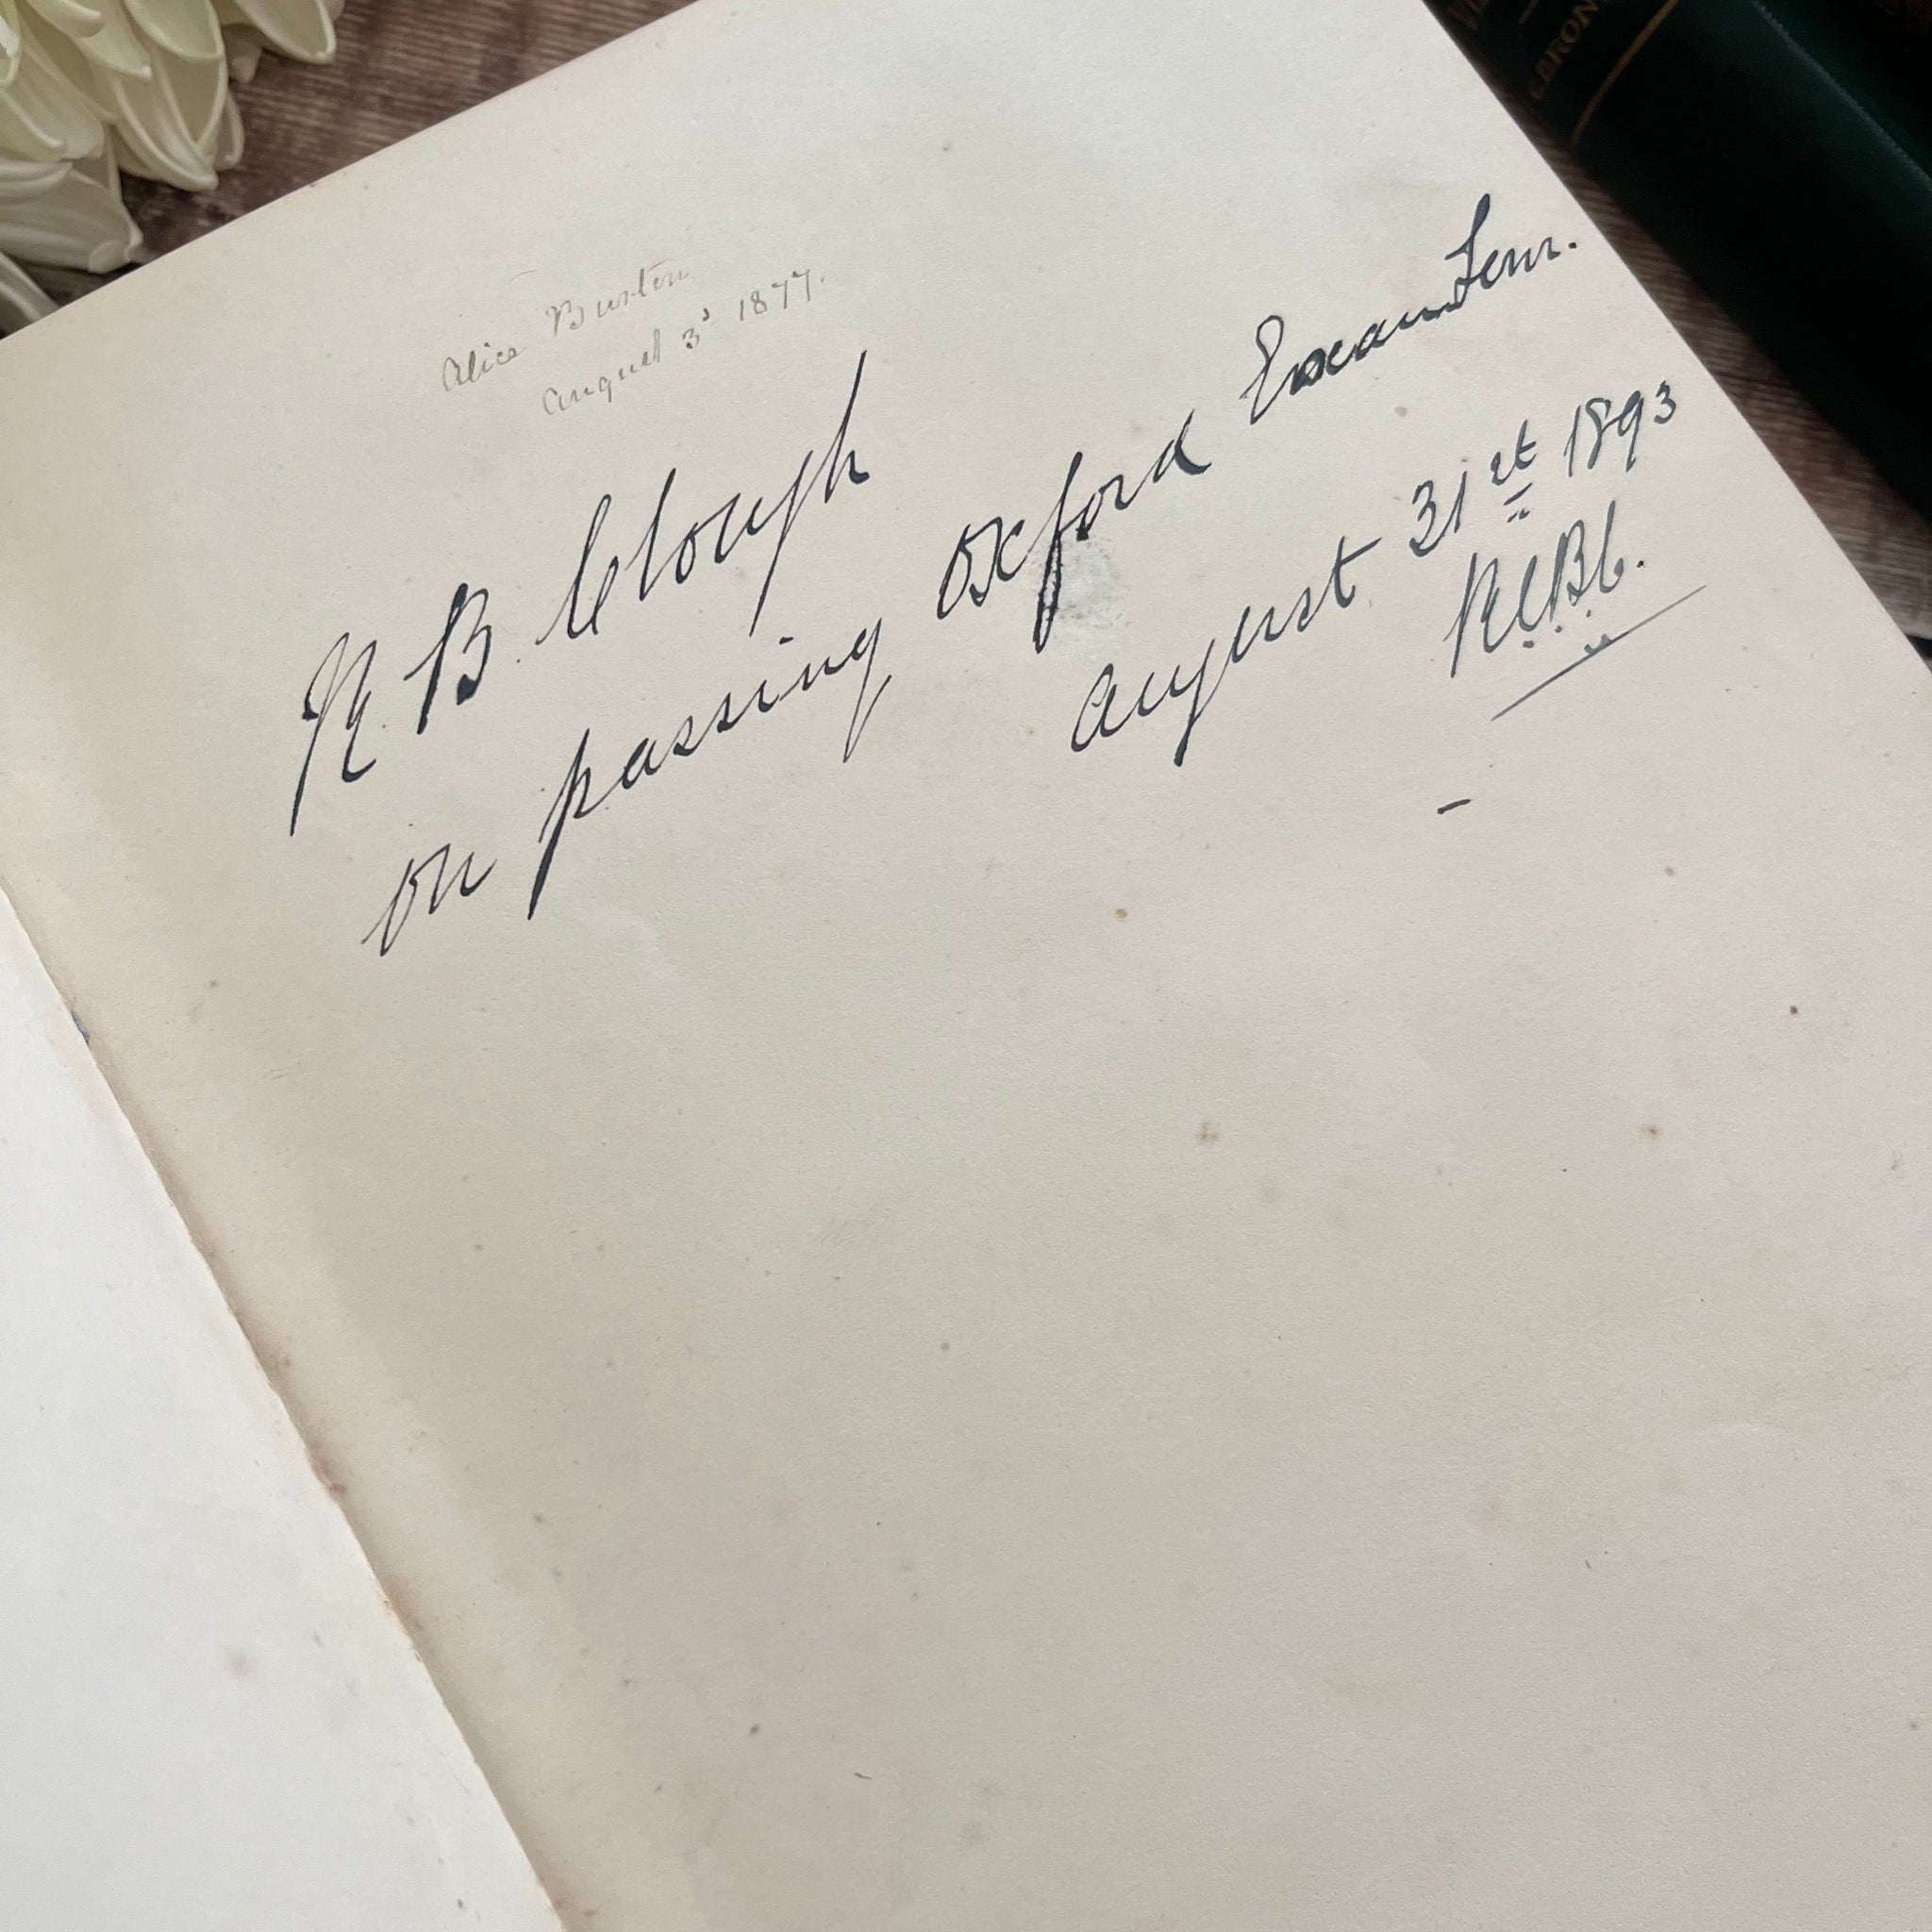 Alice Burton
August 3d 1877.
N. B. Clough
on passing Oxford Exam Jenr.
August 31st 1893
C.BRON